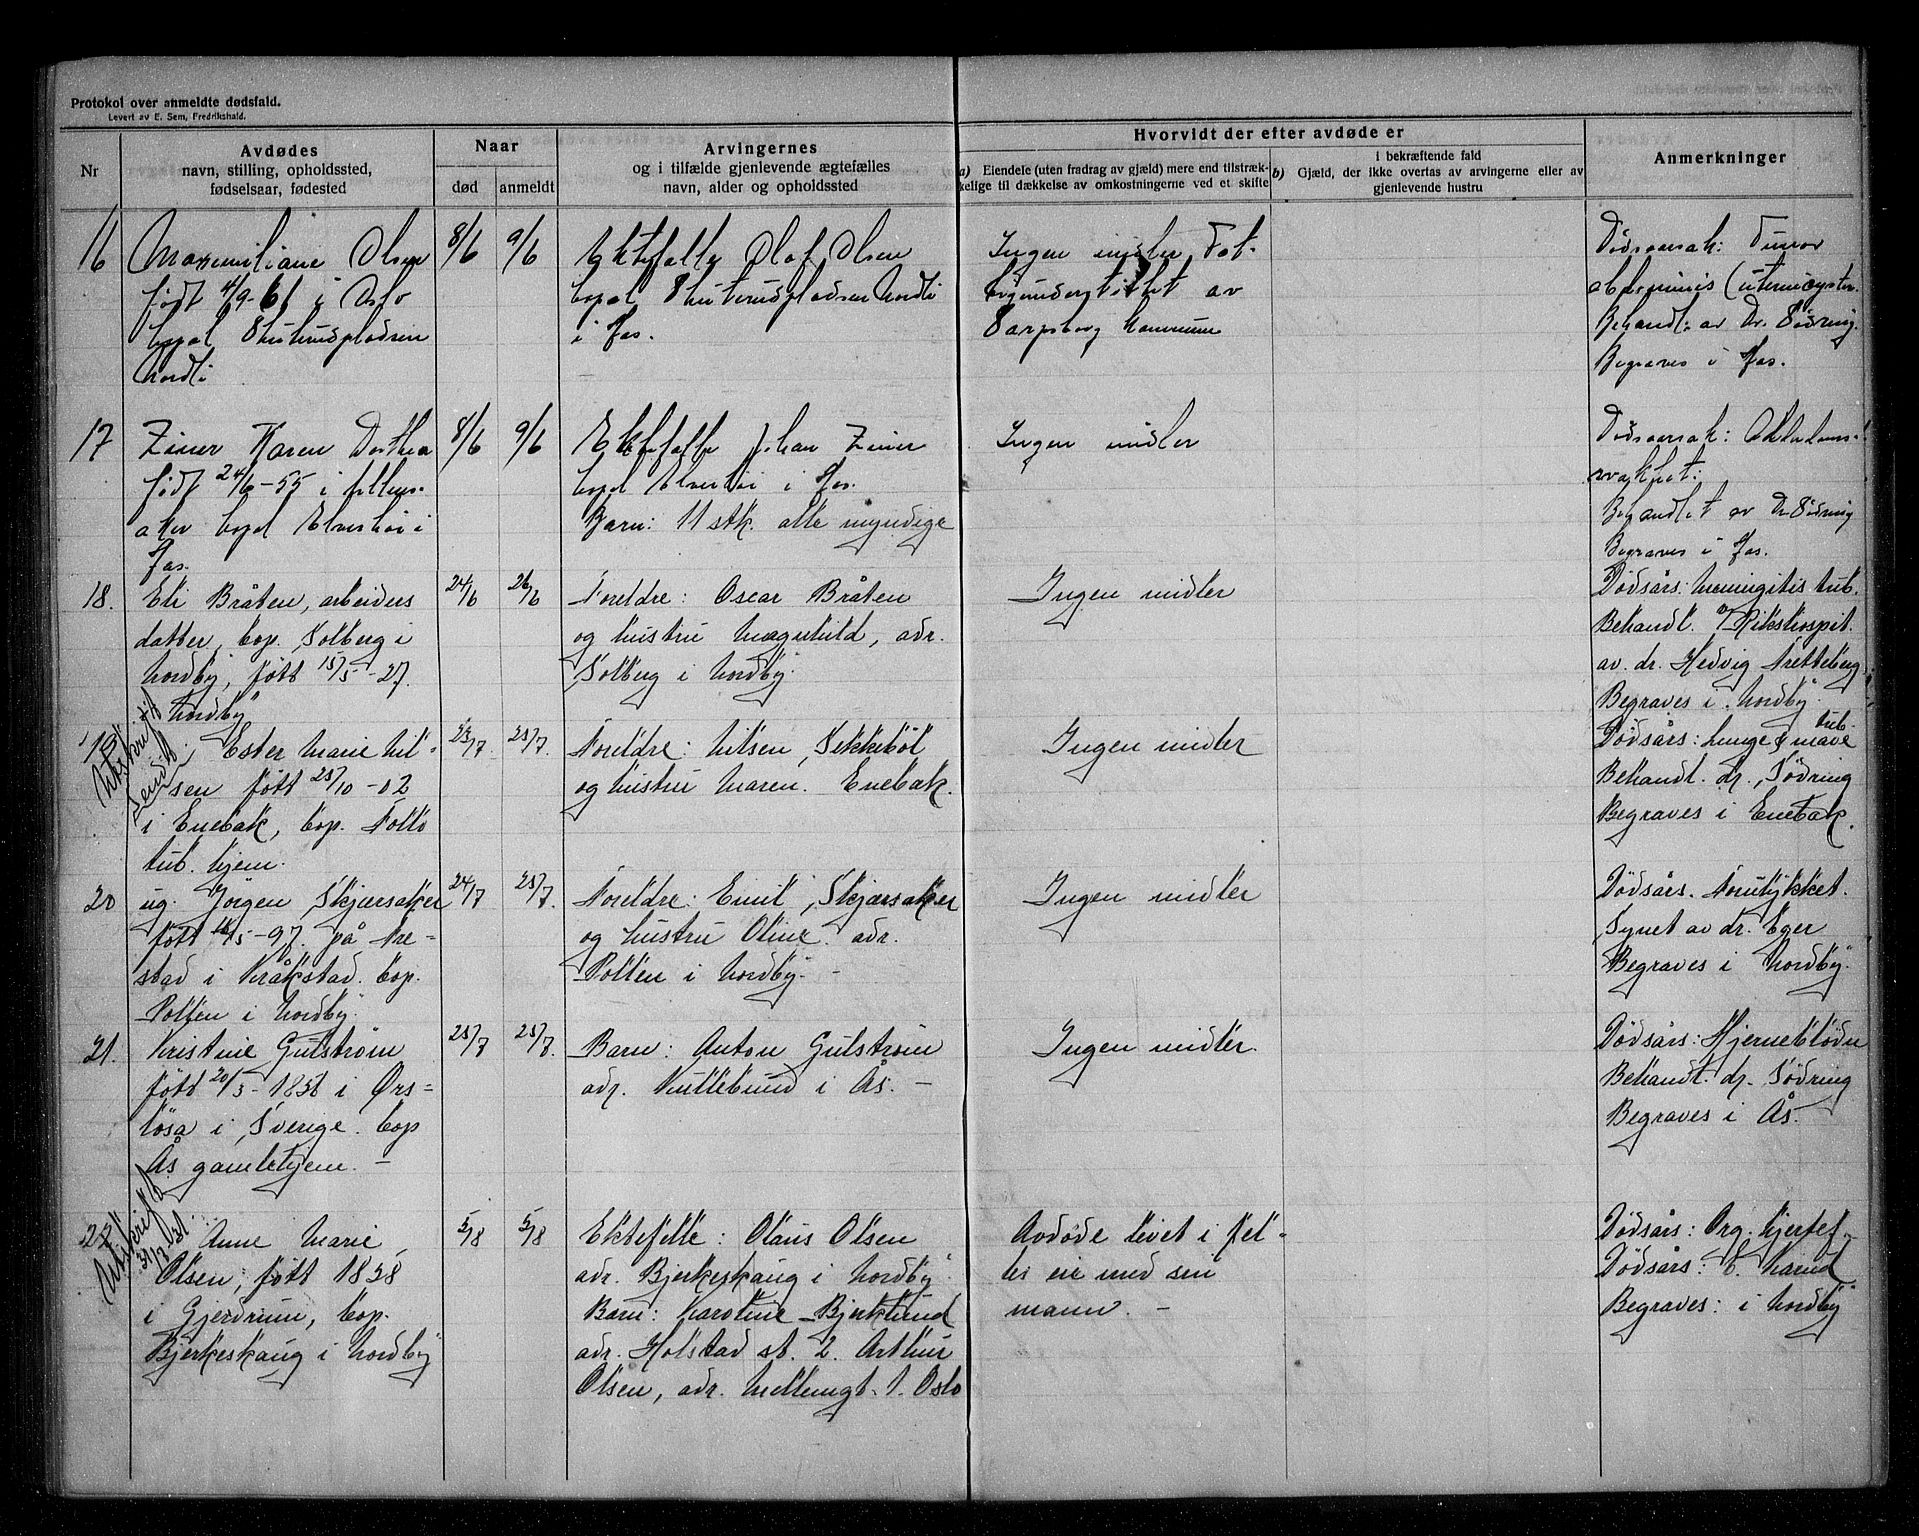 Protokol over anmeldte dødsfald.
Levert av E. Sem, Fredrikshald.
Nr
Avdødes
navn, stilling, opholdssted,
fødselsaar, fødested
Naar
død
anmeldt
Arvingernes
og i tilfælde gjenlevende ægtefælles
navn, alder og opholdssted
Hvorvidt der efter avdøde er
a) Eiendele (uten fradrag av gjæld) mere end tilstræk-
kelige til dækkelse av omkostningerne ved et skifte
b) I bekræftende fald
Gjæld, der ikke overtas av arvingerne eller av
gjenlevende hustru
Anmerkninger
16
Maximiliane Olsen
født 4/9-61 i Oslo
bopæl
Nordli
8/6
9/6
Ektefelle Olaf Olsen
bopæl Nordli
i Aas.
Ingen midler. Fat-
tigunderstøttet av
Sarpsborg kommune
Dødsaarsak: Tumor
abdominis
Behandl: av Dr. Sødring.
Begraves i Aas.
17
Ziner Karen Dorthea
født 24/6-55 i Ullens-
aker bopæl Elvestad i
Aas.
8/6
9/6
Ektefelle Johan Ziner
bopæl i Aas.
Barn: 11 stk. alle myndige
Ingen midler
Dødsaarsak: Alderdoms-
svakhet.
Behandlet av Dr Sødring
Begraves i Aas.
18.
Eli Bråten, arbeiders
datter, bop. Solberg i
Nordby, født 15/5-27.
i Nordby
24/6
26/6
Foreldre: Oscar Bråten
og hustru Magnhild, adr.
Solberg i Nordby.
Ingen midler
Dødsårs: meningitis tub.
Behandl. på Rikshospit.
av. dr. Hedvig Fretteberg
Begraves i Nordby.
19
Utskrift
sendt
Ester Marie Nil-
sen født 25/10-02
i Enebak, bop. Follo
tub. hjem.
23/7
25/7.
Foreldre: Nilsen, Sekkebøl
og hustru Maren. Enebak.
Ingen midler
Dødsårs: Lunge & mave tub.
Behandl. dr. Sødring
Begraves i Enebak.
20
ug. Jørgen Skjærsaker
født 16/5-97. på Fre-
stad i Kråkstad. bop.
Pollen i Nordby.
24/7
25/7.
Foreldre: Emil Skjærsaker
og hustru Oline. adr.
Pollen i Nordby. -
Ingen midler
Dødsårs. Forulykket.
Synet av dr. Eger
Begraves i Nordby.
21.
Kristine Gulstrøm
født 20/5-1838 i Ørs-
løsa i Sverige. bop
Ås gamlehjem. -
25/7
25/7.
Barn: Anton Gulstrøm
adr. Kullebund i Ås. -
Ingen midler.
Dødsårs: Hjerneblødn
Behandl. dr. Sødring
Begraves i Ås.
22
Utskrift
31/7 31
Anne Marie
Olsen, født 1858
i Gjerdrum, bop.
Bjerkeskaug i Nordby
5/8
5/8
Ektefelle: Olaus Olsen
adr. Bjerkeskaug i Nordby.
Barn: Karoline Bjerklund
adr. Holstad st. 2. Arthur
Olsen, adr. Mellemgt. 1. Oslo
Avdøde levet i fel-
les eie med sin
mann. -
Dødsårs: Org. hjertef.
Dødsårs:
Begraves: i Nordby